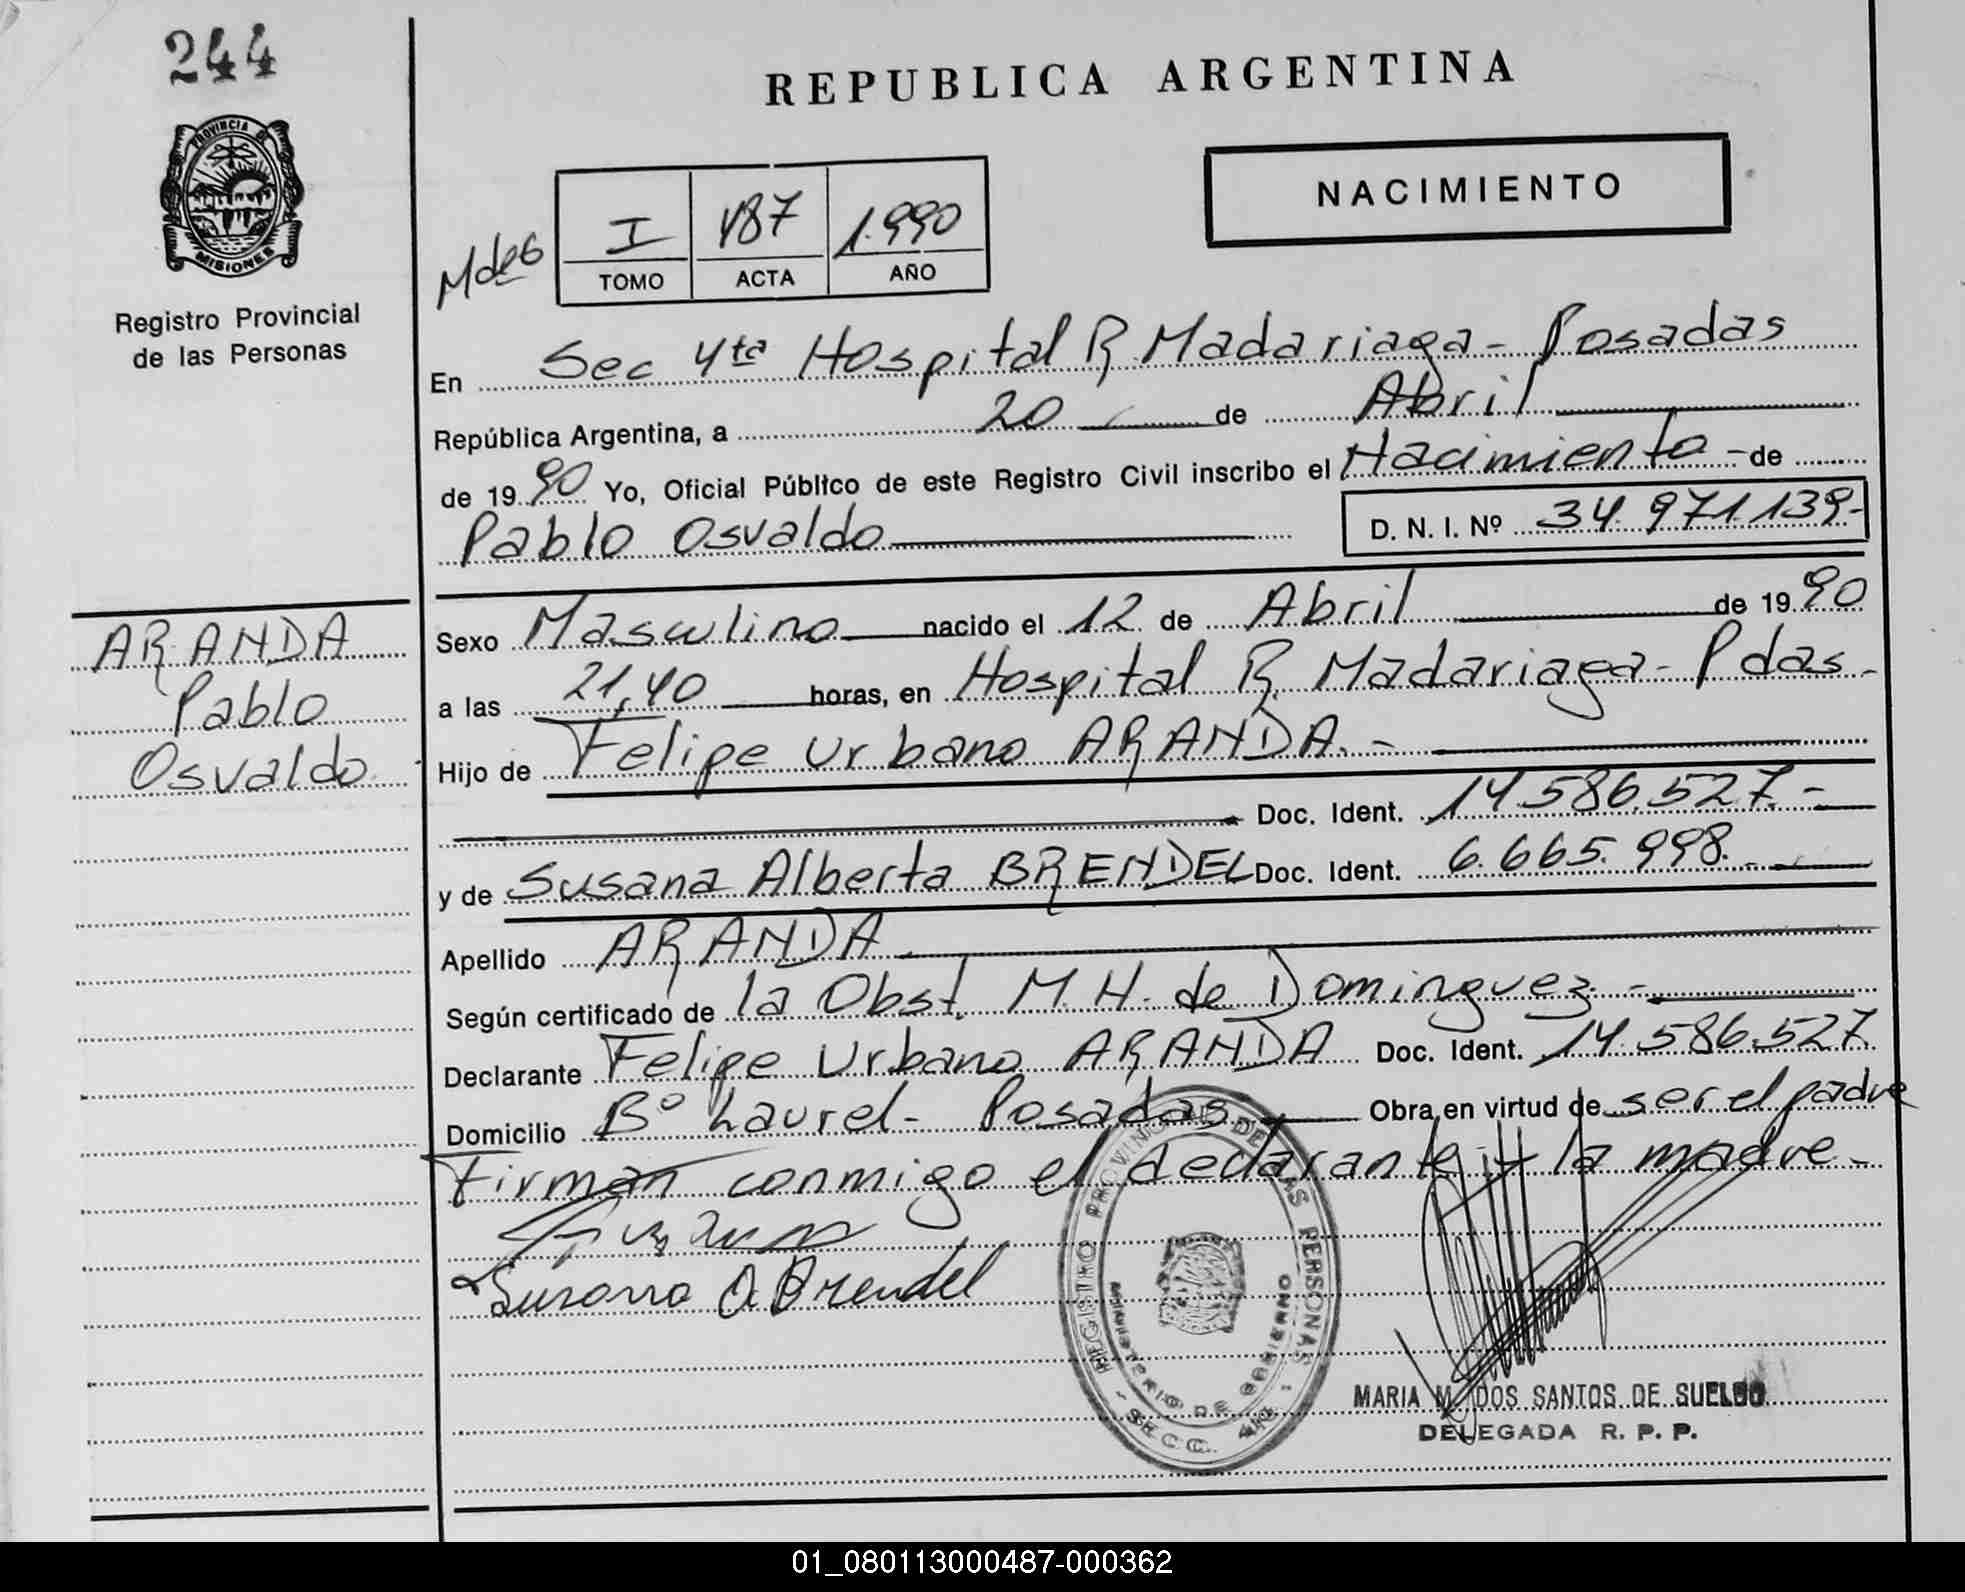 244
REPUBLICA ARGENTINA
PROVINCIA DE
MISIONES
Registro Provincial
de las Personas
NACIMIENTO
I 487 1.990
TOMO ACTA AÑO
En Sec 4ta Hospital R. Madariaga - Posadas
República Argentina, a 20 de Abril
de 1990 Yo, Oficial Público de este Registro Civil inscribo el Nacimiento - de
Pablo Osvaldo D. N. I. Nº 34.971.139-
ARANDA
Pablo
Osvaldo
Sexo Masculino nacido el 12 de Abril de 1990
a las 21,40 horas, en Hospital R. Madariaga - Pdas -
Hijo de Felipe Urbano ARANDA. -
Doc. Ident. 14.586.527. -
y de Susana Alberta BRENDEL Doc. Ident. 6.665.998. -
Apellido ARANDA
Según certificado de la Obst. M. H. de Dominguez -
Declarante Felipe Urbano ARANDA Doc. Ident. 14.586.527
Domicilio Bº Laurel - Posadas Obra en virtud de ser el padre
Firman conmigo el declarante y la madre -
Susana A. Brendel
REGISTRO PROVINCIAL DE LAS PERSONAS
MINISTERIO DE GOBIERNO
- SECC. 4ta. -
MARIA M. DOS SANTOS DE SUELDO
DELEGADA R. P. P.
01_080113000487-000362